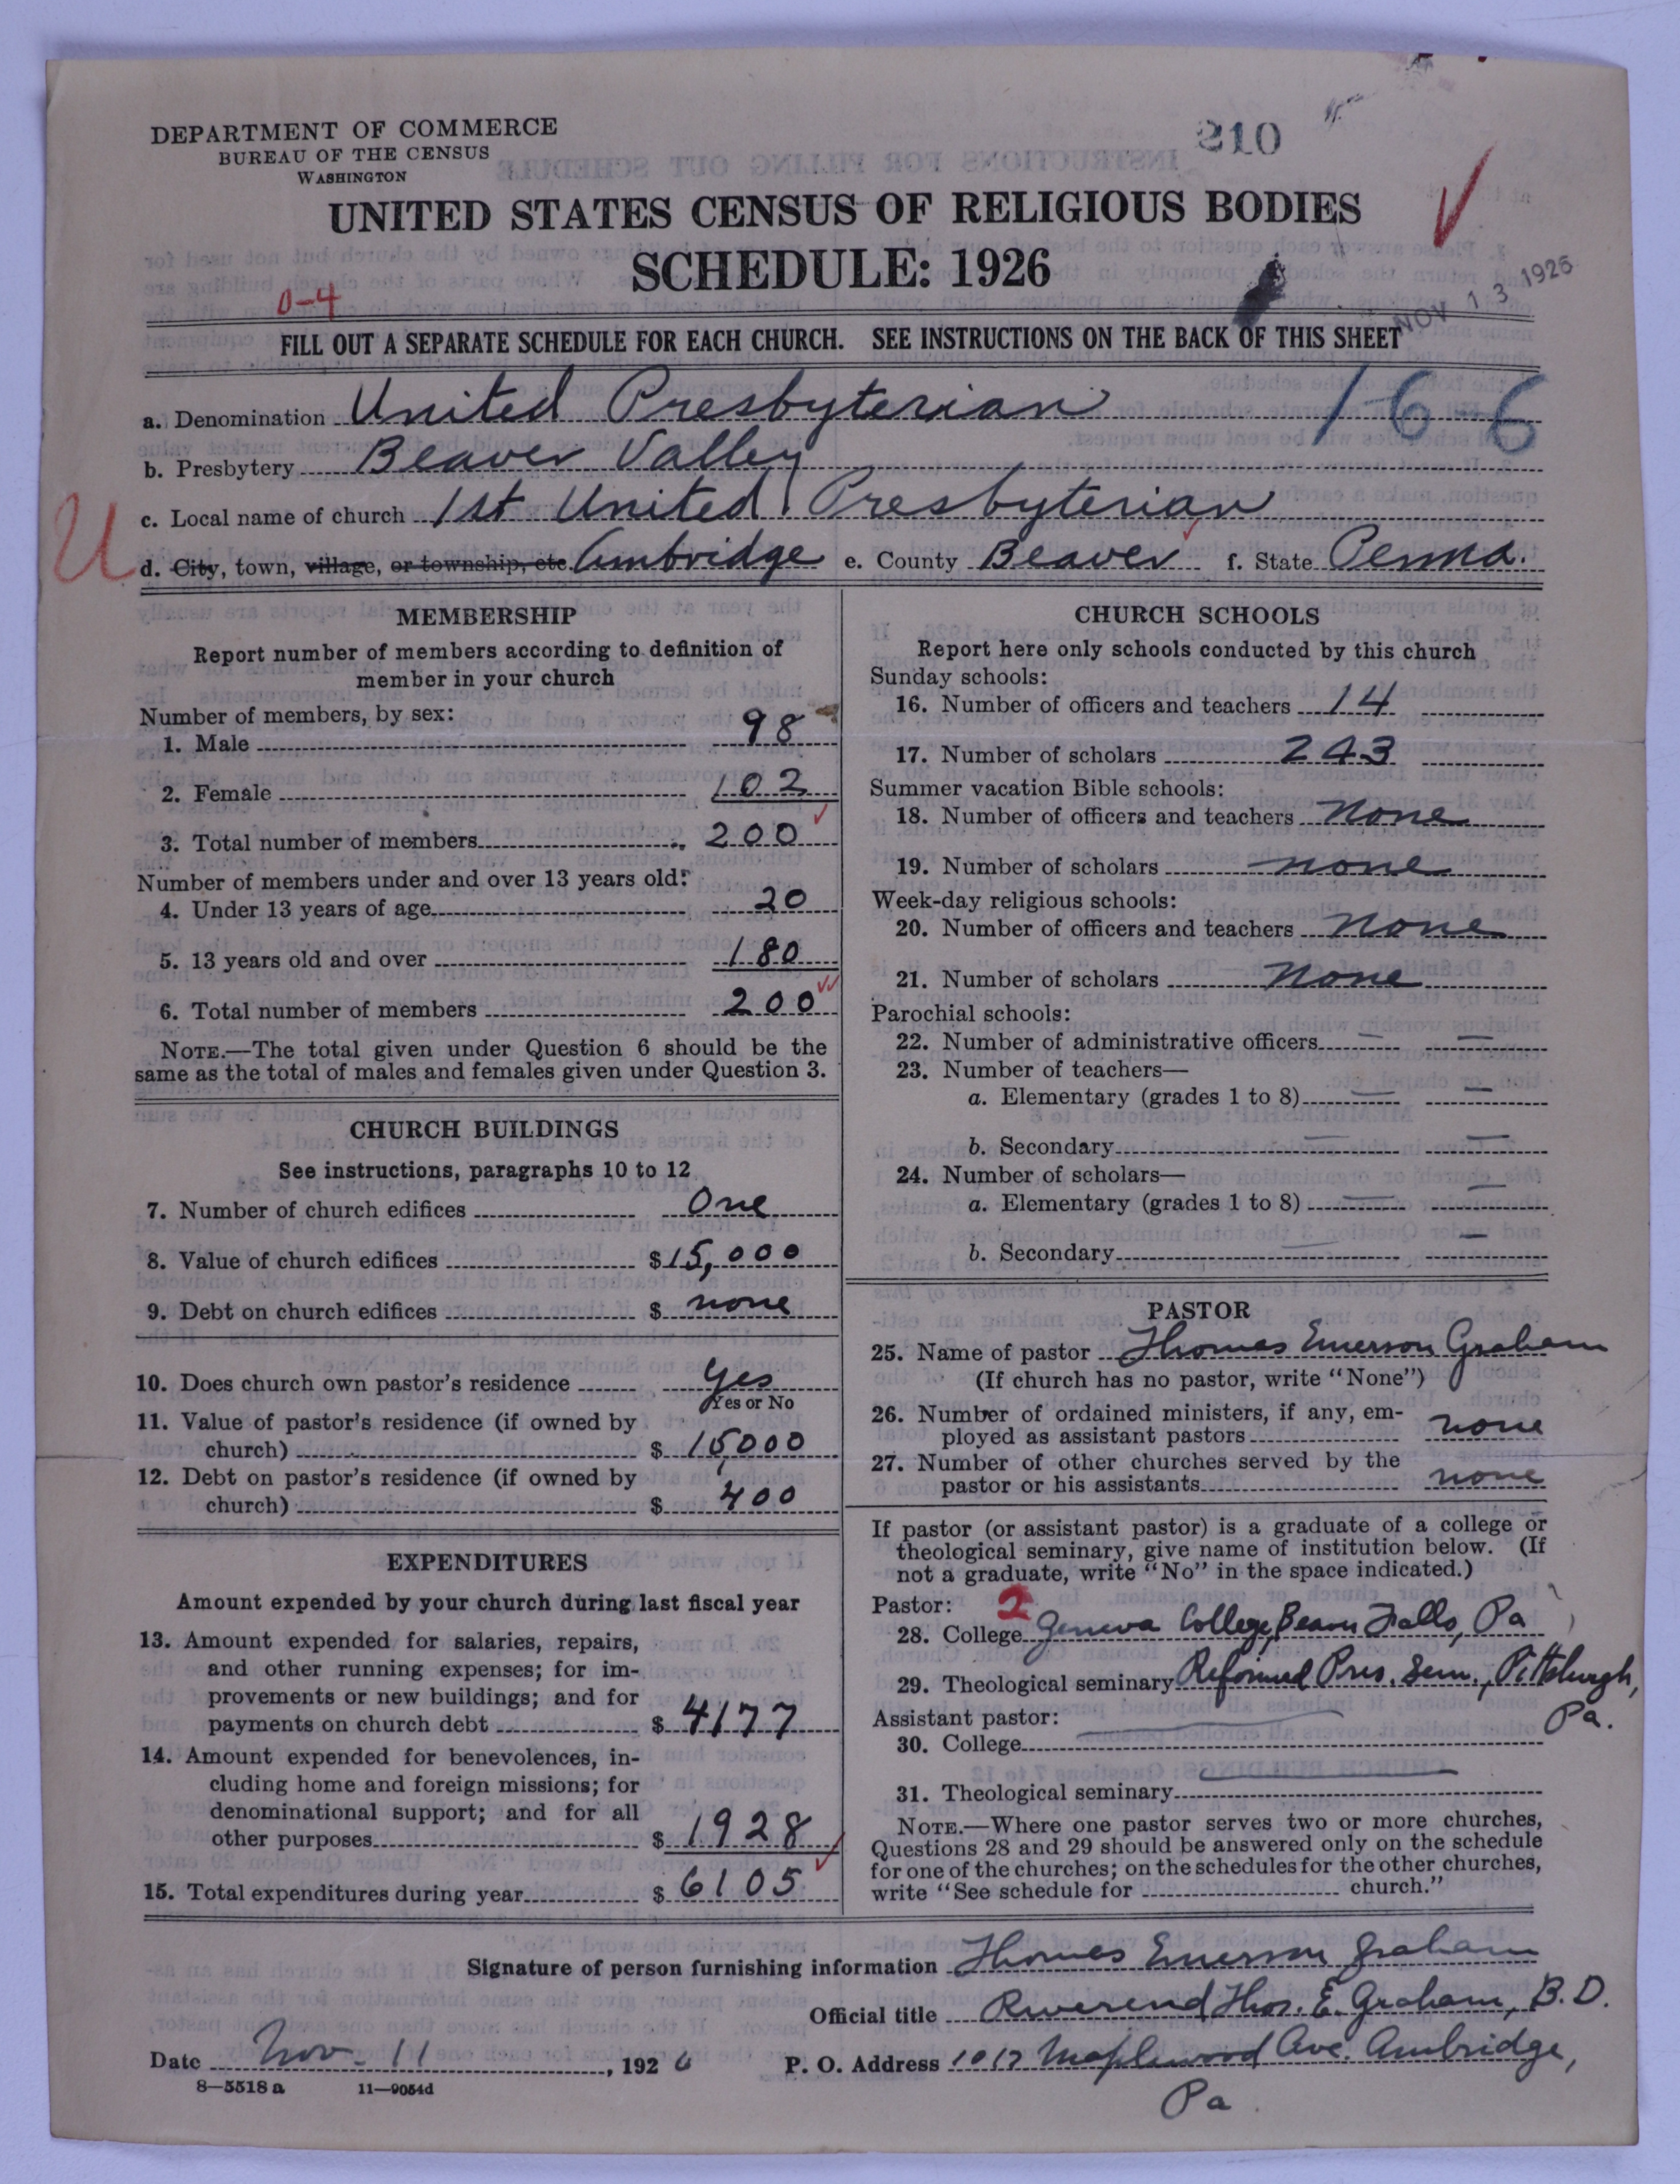 210
DEPARTMENT OF COMMERCE
BUREAU OF THE CENSUS
WASHINGTON
UNITED STATES CENSUS OF RELIGIOUS BODIES
SCHEDULE: 1926
NOV 13 1926
0-4
FILL OUT A SEPARATE SCHEDULE FOR EACH CHURCH. SEE INSTRUCTIONS ON THE BACK OF THIS SHEET
166
a. Denomination United Presbyterian
b. Presbytery Beaver Valley
c. Local name of church 1st United Presbyterian
U
d. City, town, village, or township, etc. Ambridge e. County Beaver f. State Penna.
MEMBERSHIP
Report number of members according to definition of
member in your church
Number of members, by sex:
1. Male 98
2. Female 102
3. Total number of members 200
Number of members under and over 13 years old:
4. Under 13 years of age 20
5. 13 years old and over 180
6. Total number of members 200
NOTE.—The total given under Question 6 should be the
same as the total of males and females given under Question 3.
CHURCH BUILDINGS
See instructions, paragraphs 10 to 12
7. Number of church edifices One
8. Value of church edifices $15,000
9. Debt on church edifices $ none
10. Does church own pastor's residence Yes
Yes or No
11. Value of pastor's residence (if owned by
church) $ 15000
12. Debt on pastor's residence (if owned by
church) $ 400
EXPENDITURES
Amount expended by your church during last fiscal year
13. Amount expended for salaries, repairs,
and other running expenses; for im-
provements or new buildings; and for
payments on church debt $ 4177
14. Amount expended for benevolences, in-
cluding home and foreign missions; for
denominational support; and for all
other purposes $ 1928
15. Total expenditures during year $ 6105
CHURCH SCHOOLS
Report here only schools conducted by this church
Sunday schools:
16. Number of officers and teachers 14
17. Number of scholars 243
Summer vacation Bible schools:
18. Number of officers and teachers none
19. Number of scholars none
Week-day religious schools:
20. Number of officers and teachers none
21. Number of scholars none
Parochial schools:
22. Number of administrative officers — —
23. Number of teachers—
a. Elementary (grades 1 to 8) — —
b. Secondary — —
24. Number of scholars—
a. Elementary (grades 1 to 8) — —
b. Secondary — —
PASTOR
25. Name of pastor Thomas Emerson Graham
(If church has no pastor, write "None")
26. Number of ordained ministers, if any, em-
ployed as assistant pastors none
27. Number of other churches served by the
pastor or his assistants none
If pastor (or assistant pastor) is a graduate of a college or
theological seminary, give name of institution below. (If
not a graduate, write "No" in the space indicated.)
Pastor: 2
28. College Geneva College, Beaver Falls, Pa
29. Theological seminary Reformed Pres. Sem., Pittsburgh,
Pa.
Assistant pastor:
30. College
31. Theological seminary
NOTE.—Where one pastor serves two or more churches,
Questions 28 and 29 should be answered only on the schedule
for one of the churches; on the schedules for the other churches,
write "See schedule for church."
Signature of person furnishing information Thomas Emerson Graham
Official title Reverend Thos. E. Graham, B.D.
Date Nov. 11, 1926 P. O. Address 1017 Maplewood Ave. Ambridge,
Pa.
8—5518a 11—9054d